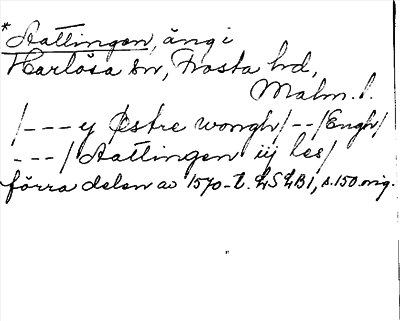 *Aattingen, äng i
Harlösa sn, Frosta hd,
Malm. l.
/--- y Østre wongh/--/Engh/
---/Aattingen iij les/
förra delen av 1570-t. LSLB1, s. 150 orig.